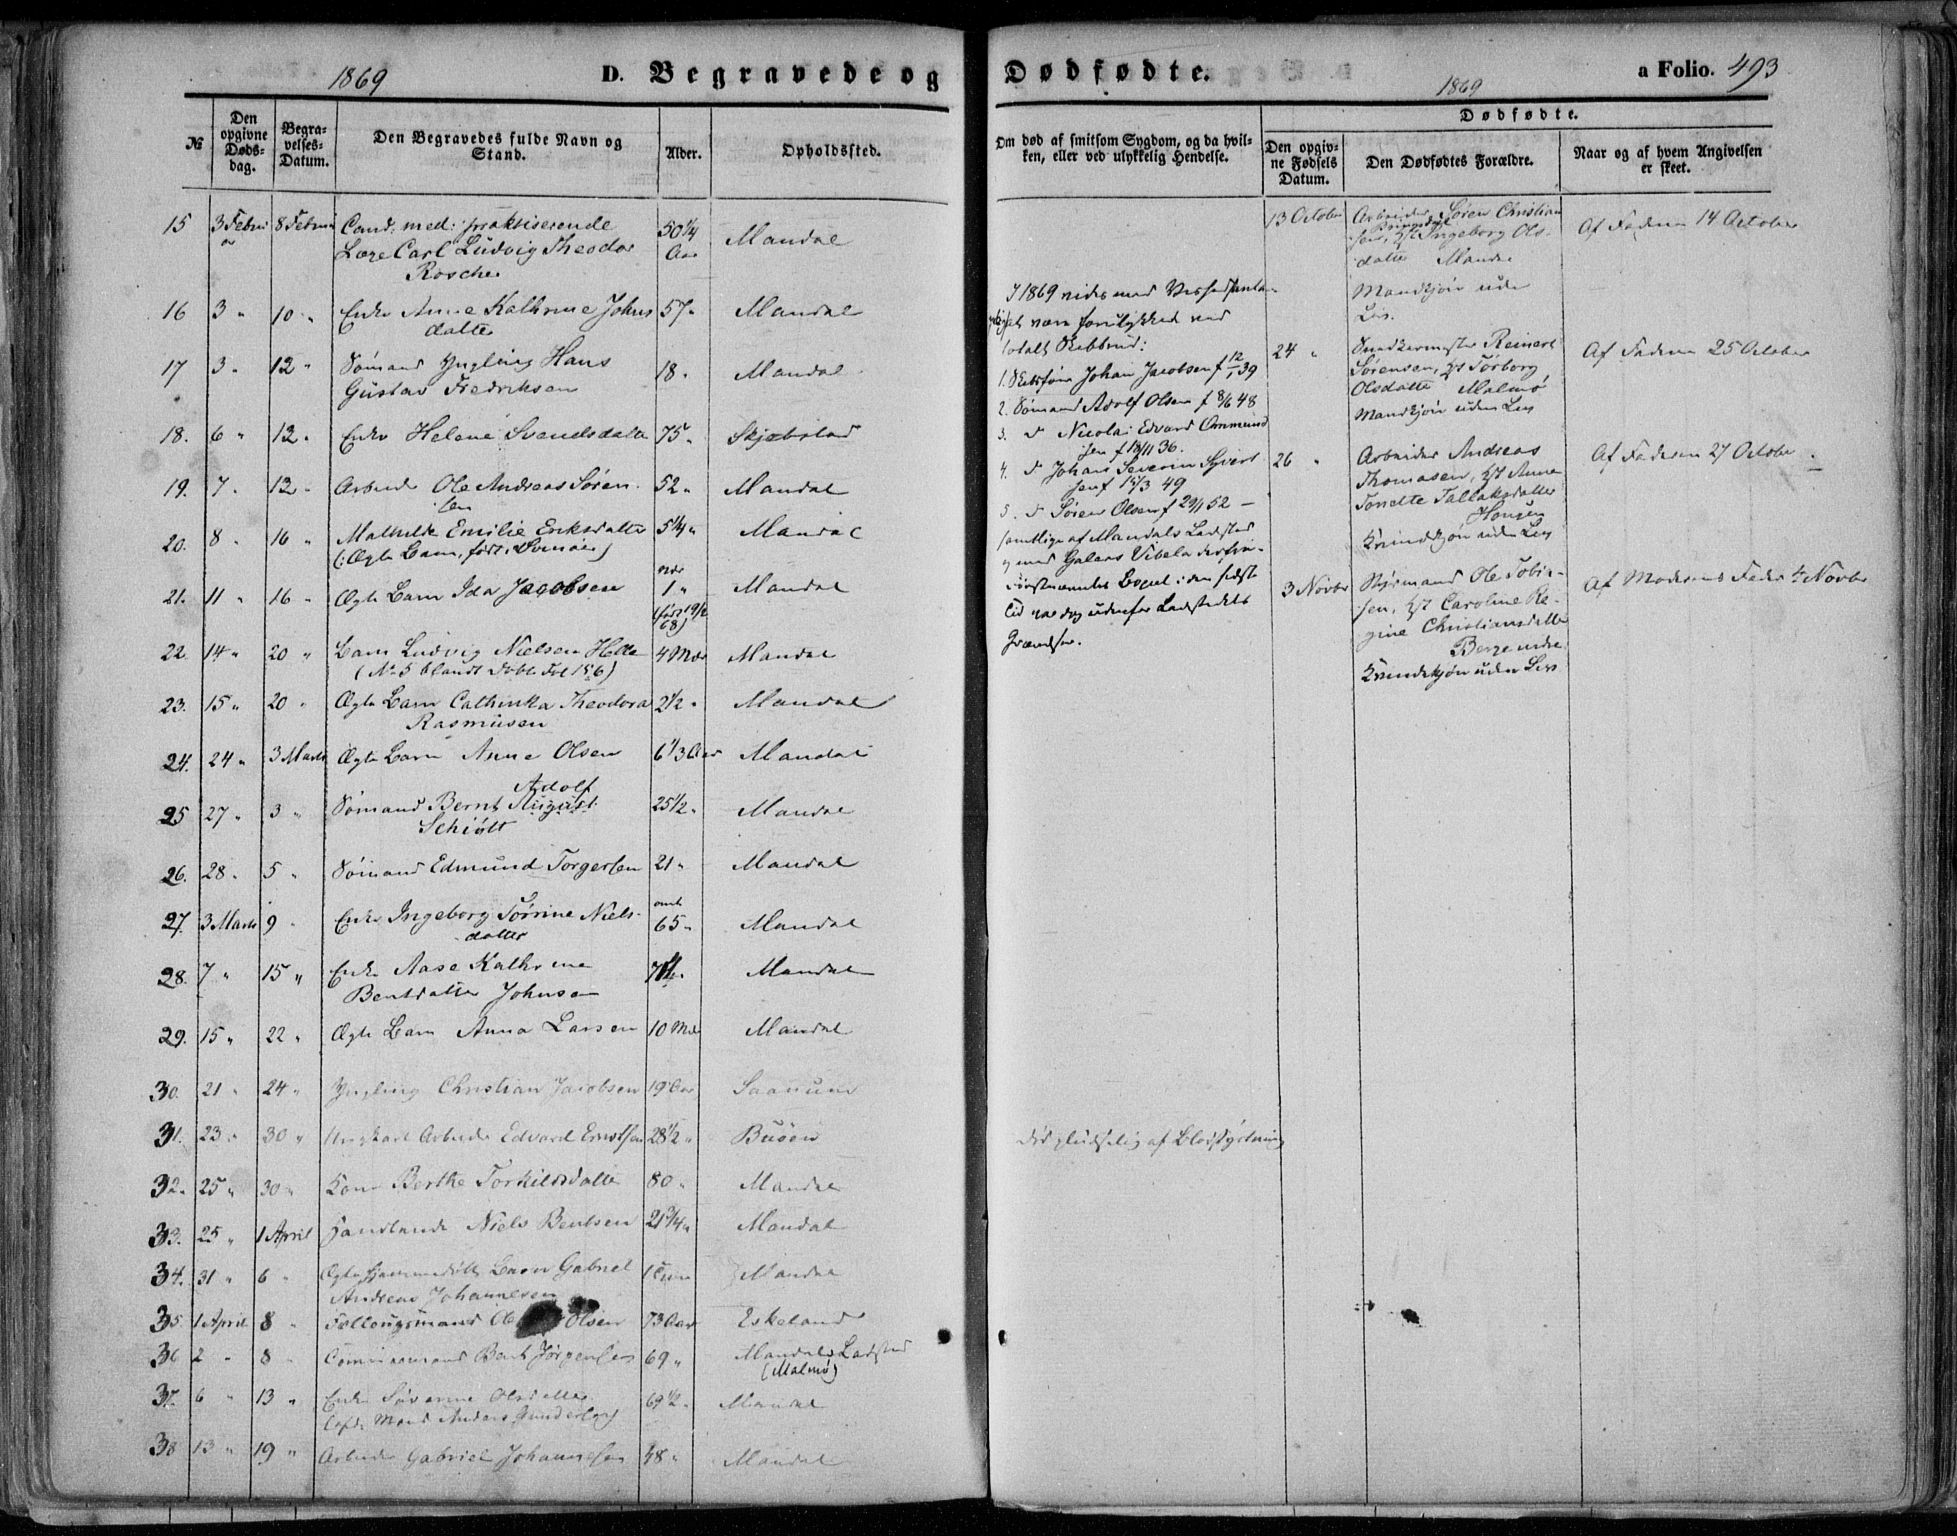 1869
D. Begravede og
Dødfødte.
1869
a Folio. 493
№
Den opgivne Døds-dag.
Begra-velses-Datum.
Den Begravedes fulde Navn og Stand.
Alder.
Opholdssted.
15 3 Febru 8 Febru Cand. med: praktiserende 50 1/4 Mandal
Læge Carl Ludvig Theodor Aar
Roscher
16 3 " 10 " Enke Anne Kathrine Johns 57 " Mandal
datter
17 3 " 12 " Sømand Yngling Hans 18 " Mandal
Gustav Fredriksen
18. 6 " 12 " Enke Helene Svendsdatter 75 " Skjebstad
19. 7 " 12 " Arbeider Ole Andreas Søren 52 " Mandal
sen
20. 8 " 16 " Mathilde Emilie Eriksdatter 5 1/4 " Mandal
(: Ægte Barn, født i Svinør)
21. 11 " 16 " Ægte Barn Ida Jacobsen nær 1 " Mandal
(født 19/2 68)
22. 14 " 20 " Barn Ludvig Nielsen Helle 4 Mdr Mandal
(No 5 blandt Døbte Fol 186)
23. 15 " 20 " Ægte Barn Cathinka Theodora 2 1/2 " Mandal
Rasmusen
24. 24 " 3 Marts Ægte Barn Anne Olsen 6 1/3 Aar Mandal
Adolf
25 27 " 3 " Sømand Bernt August 25 1/2 " Mandal
Schiøtt
26. 28 " 5 " Sømand Edmund Torgersen 21 " Mandal
27. 3 Marts 9 " Enke Ingeborg Tørrine Niels- omt 65 " Mandal
datter
28. 7 " 15 " Enke Aase Kathrine 74 " Mandal
Bentsdatter Johnsen
29. 15 " 22 " Ægte Barn Anna Larsen 10 Mdr Mandal
30. 21 " 24 " Yngling Christian Jacobsen 19 Aar Saanum
31. 23 " 30 " Ungkarl Arbeider Edvard Erntsen 28 1/2 " Buøen
32. 25 " 30 " Kone Berthe Torkildsdatter 80 " Mandal
33. 25 " 1 April Handlende Niels Bentsen 21 3/4 " Mandal
34. 31 " 6 " Ægte hjemmedøbt Barn Gabriel 1 Time Mandal
Andreas Johannesen
35. 1 April 8 " Føllougsmand Ole Olsen 73 Aar Eskeland
36 2 " 8 " Bent Jørgensen 69 " Mandals Ladsted
(Malmø)
37. 6 " 13 " Enke Søverine Olsdatter 69 1/2 " Mandal
(afd. Mand Anders Gundersen)
38 13 " 19 " Arbeider Gabriel Johannesen 48 " Mandal
Om død af smitsom Sygdom, og da hvil-
ken, eller ved ulykkelig Hendelse.
I 1869 vides med Vished
at være forulykked ved
totalt Skibbrud:
1. Skibsfører Johan Jacobsen f 12/1 39
2. Sømand Adolf Olsen f 8/6 48
3. D Nicolai Edvard Ommund
sen f 18/11 36.
4. D Johan Severin Syvert
sen f 15/3 49
5. D Søren Olsen f 29/1 52 —
samtlige af Mandals Ladsted
Tid var dog udenfor Ladstedets
Grændser.
Død pludselig af Blodstyrtning
Dødfødte.
Den opgiv-
ne Fødsels
Datum.
Den Dødfødtes Forældre.
Naar og af hvem Angivelsen
er skeet.
13 October Arbeider Søren Christian Af Faderen 14 October
sen, h/t Ingeborg Ols-
datter Mandal
Mandkjøn uden
Liv.
24 " Snedkermester Reinert Af Faderen 25 October
Sørensen, h/t Torborg
Olsdatter Malmø
Mandkjøn uden Liv
26 " Arbeider Andreas Af Faderen 27 October
Thomasen, h/t Anne
Tonette Tallaksdatter
Kvindekjøn uden Liv
3 Novbr Styrmand Ole Tobia- Af Moderens Fader 4 Novbr
sen, h/t Caroline Re-
gine Christiansdatter
Kvindekjøn uden Liv